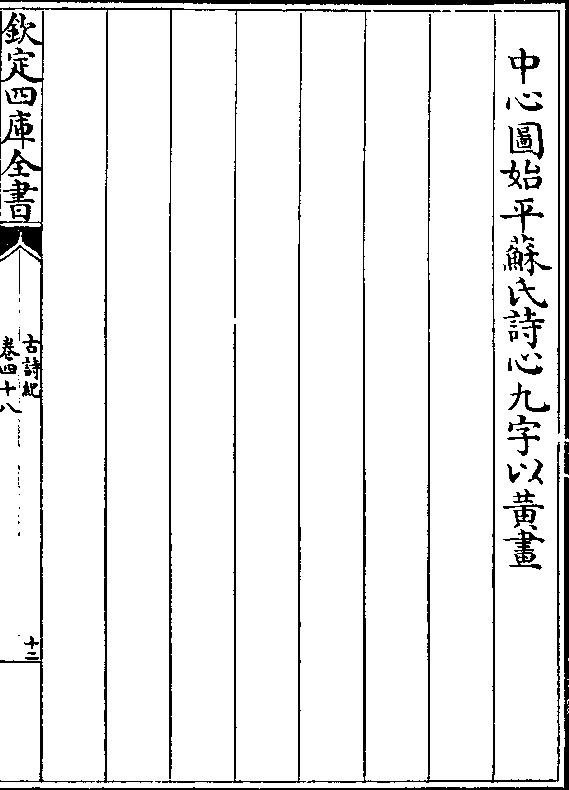 中心圖始平蘇氏詩心九字以黃畫
欽定四庫全書
古詩紀
卷四十八
十二